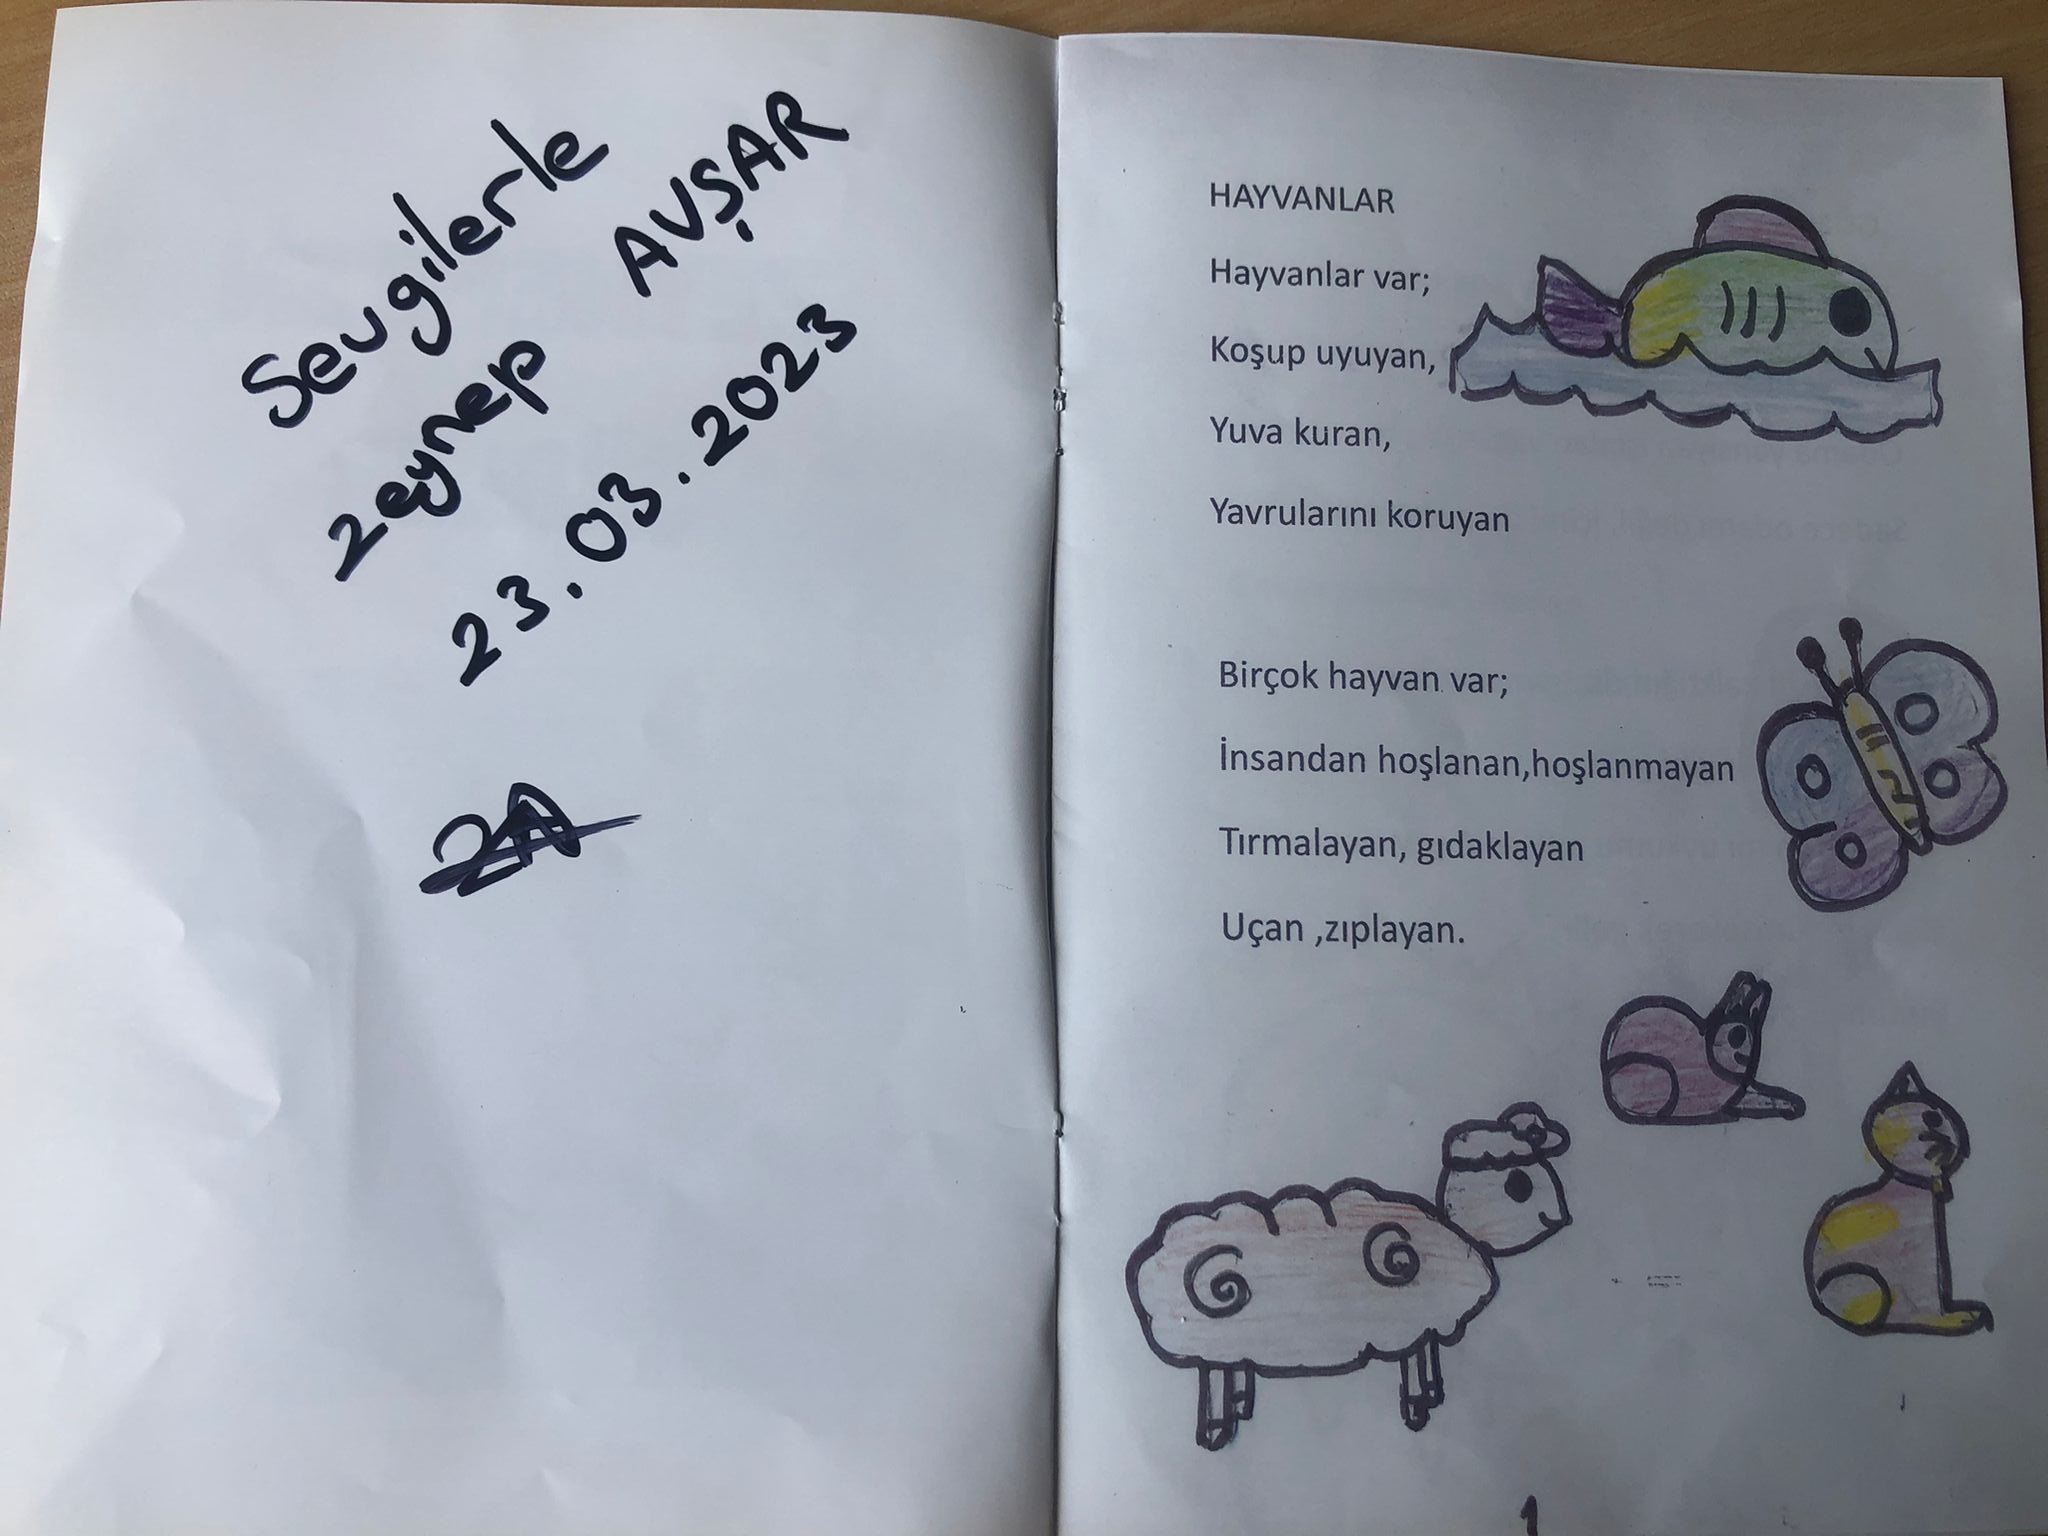 Sevgilerle
Zeynep AVŞAR
23.03.2023
HAYVANLAR
Hayvanlar var;
Koşup uyuyan,
Yuva kuran,
Yavrularını koruyan
Birçok hayvan var;
İnsandan hoşlanan,hoşlanmayan
Tırmalayan, gıdaklayan
Uçan ,zıplayan.
1